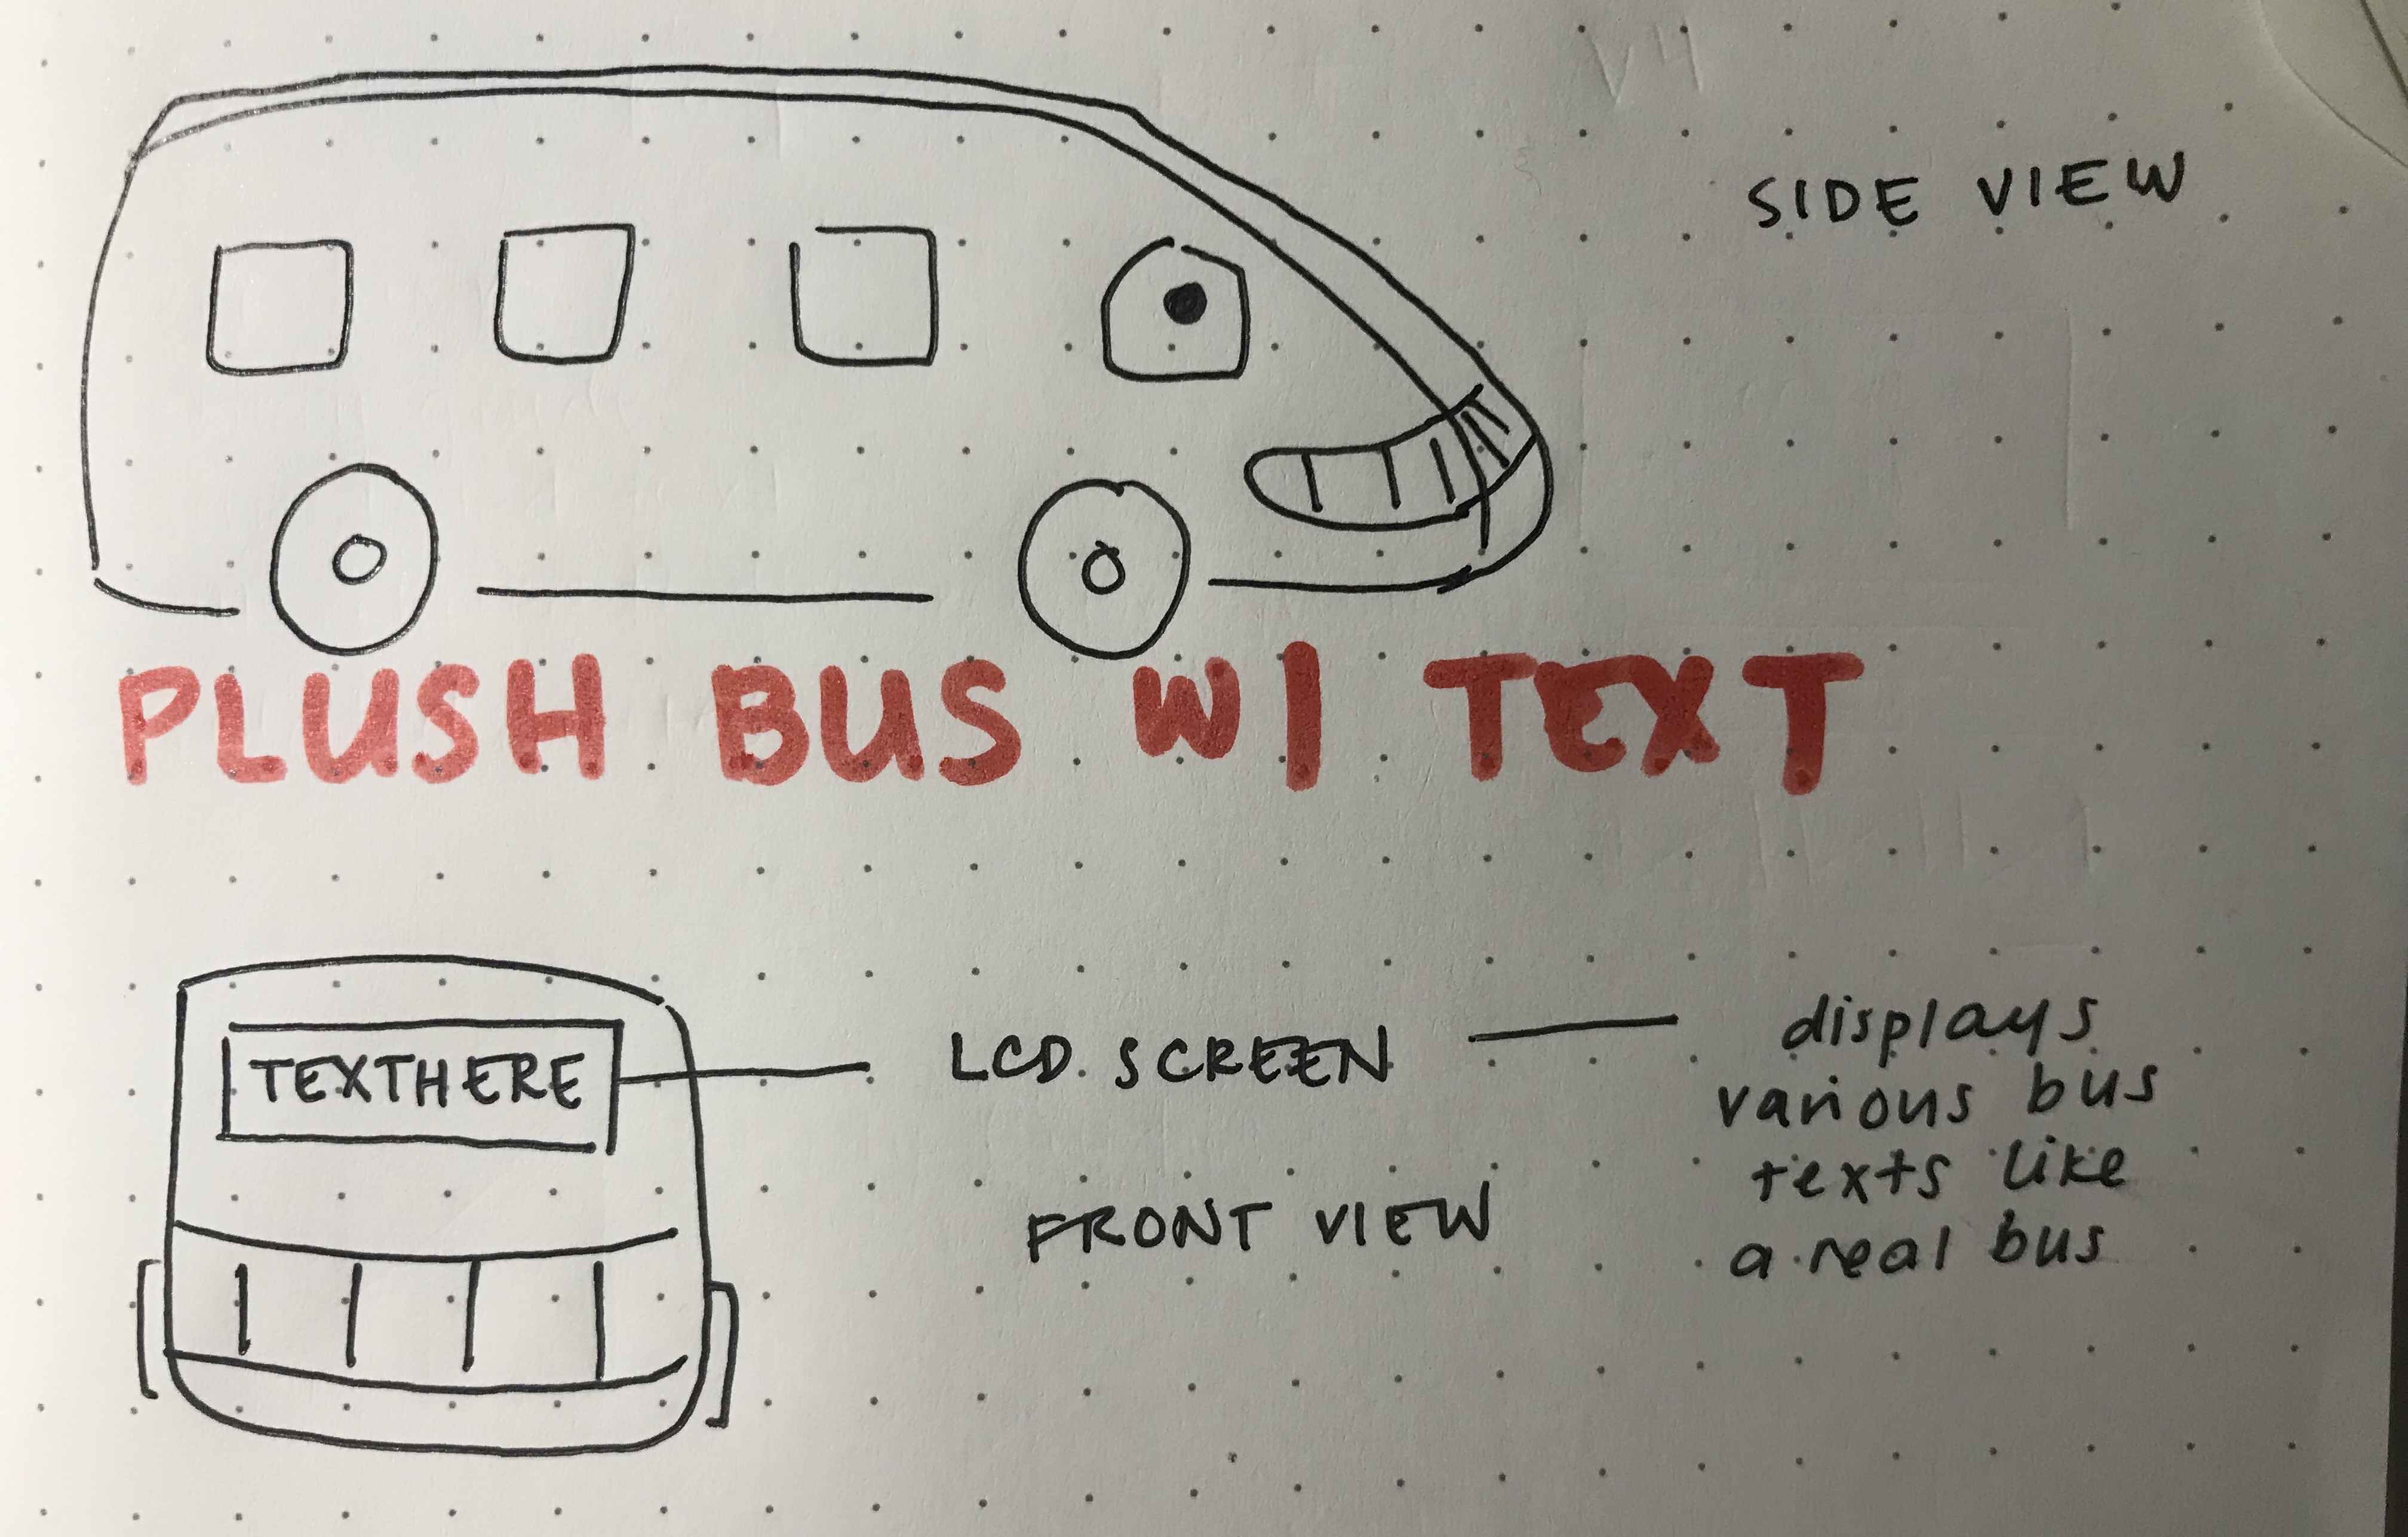 SIDE VIEW
PLUSH BUS W/ TEXT
TEXTHERE
LCD SCREEN
displays
various bus
texts like
a real bus
FRONT VIEW